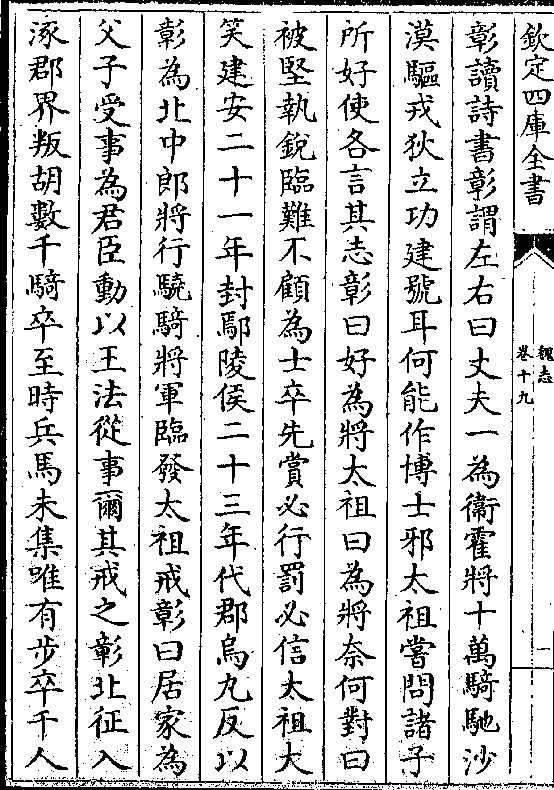 欽定四庫全書
魏志
卷十九
一
彰讀詩書彰謂左右曰丈夫一為衞霍將十萬騎馳沙
漠驅戎狄立功建號耳何能作博士邪太祖嘗問諸子
所好使各言其志彰曰好為將太祖曰為將奈何對曰
被堅執銳臨難不顧為士卒先賞必行罰必信太祖大
笑建安二十一年封鄢陵侯二十三年代郡烏丸反以
彰為北中郎將行驍騎將軍臨發太祖戒彰曰居家為
父子受事為君臣動以王法從事爾其戒之彰北征入
涿郡界叛胡數千騎卒至時兵馬未集唯有步卒千人